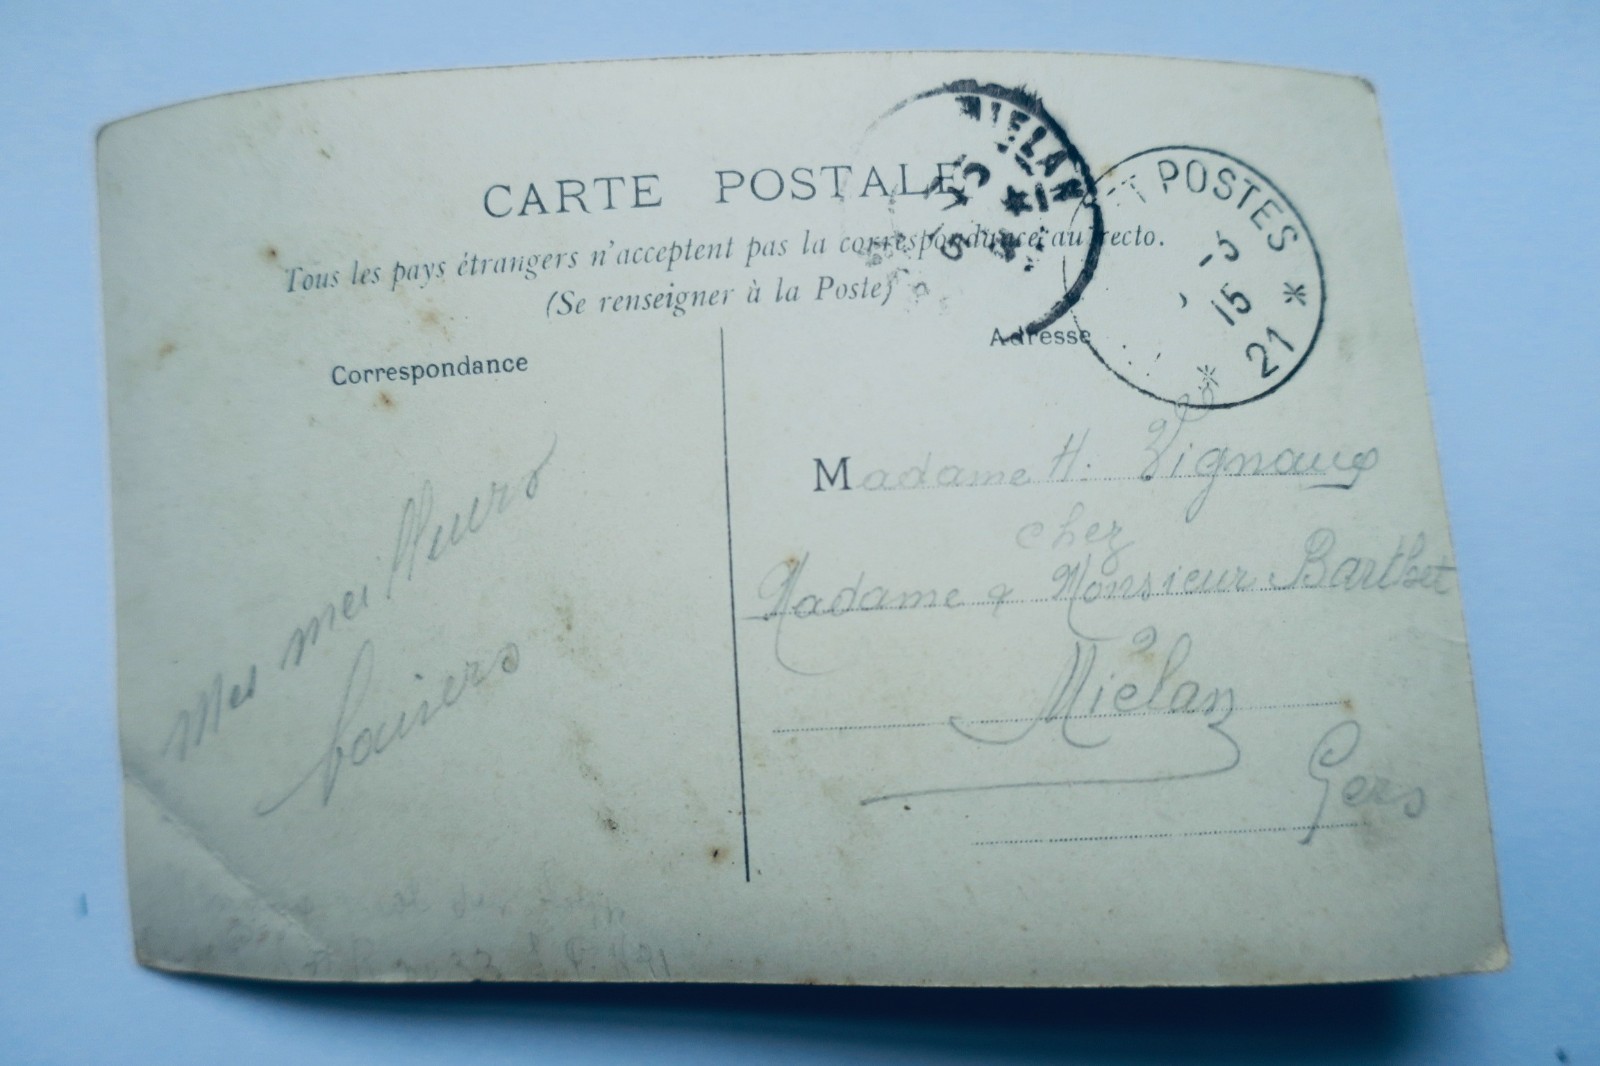 CARTE POSTALE
Tous les pays étrangers n'acceptent pas la correspondance au recto.
(Se renseigner à la Poste)
MIELAN
POSTES * 21 *
15
Correspondance
Adresse
Mes meilleurs
baisers
Madame H. Vignaux
chez
Madame & Monsieur Barthet
Miélan
Gers